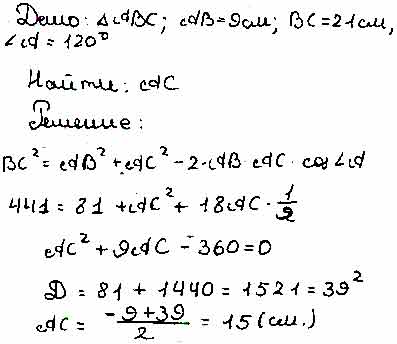 Дано: △ABC; AB=9см; BC=21см,
∠A=120°
Найти: AC
Решение:
BC² = AB² + AC² - 2·AB·AC·cos∠A
441 = 81 + AC² + 18AC · 1/2
AC² + 9AC - 360 = 0
D = 81 + 1440 = 1521 = 39²
AC = (-9+39)/2 = 15 (см.)